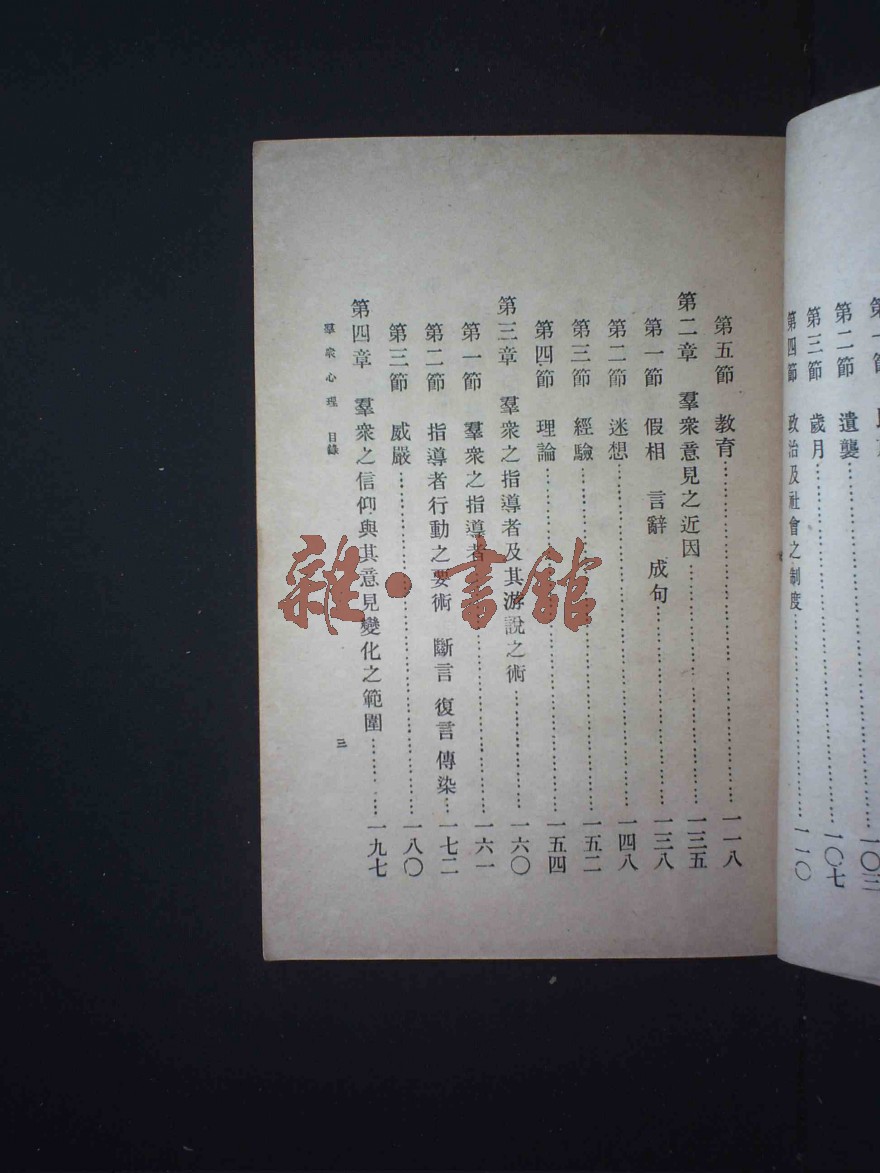 第二節 遺襲……一〇三
第三節 歲月……一〇七
第四節 政治及社會之制度……一一〇
第五節 教育……一一八
第二章 羣衆意見之近因……一三五
第一節 假相 言辭 成句……一三八
第二節 迷想……一四八
第三節 經驗……一五二
第四節 理論……一五四
第三章 羣衆之指導者及其游說之術……一六〇
第一節 羣衆之指導者……一六一
第二節 指導者行動之要術 斷言 復言 傳染……一七二
第三節 威嚴……一八〇
第四章 羣衆之信仰與其意見變化之範圍……一九七
羣衆心理 目錄 三
雜·書館